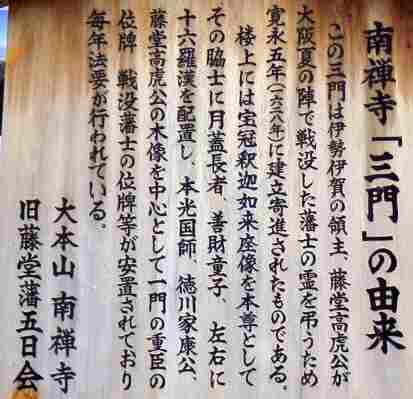 南禅寺「三門」の由来
この三門は伊勢伊賀の領主、藤堂高虎公が
大阪夏の陣で戦没した藩士の霊を弔うため
寛永五年(一六二八年)に建立寄進されたものである。
楼上には宝冠釈迦如来座像を本尊として
その脇士に月蓋長者、善財童子、左右に
十六羅漢を配置し、本光国師、徳川家康公、
藤堂高虎公の木像を中心として一門の重臣の
位牌、戦没藩士の位牌等が安置されており
毎年法要が行われている。
大本山 南禅寺
旧藤堂藩五日会